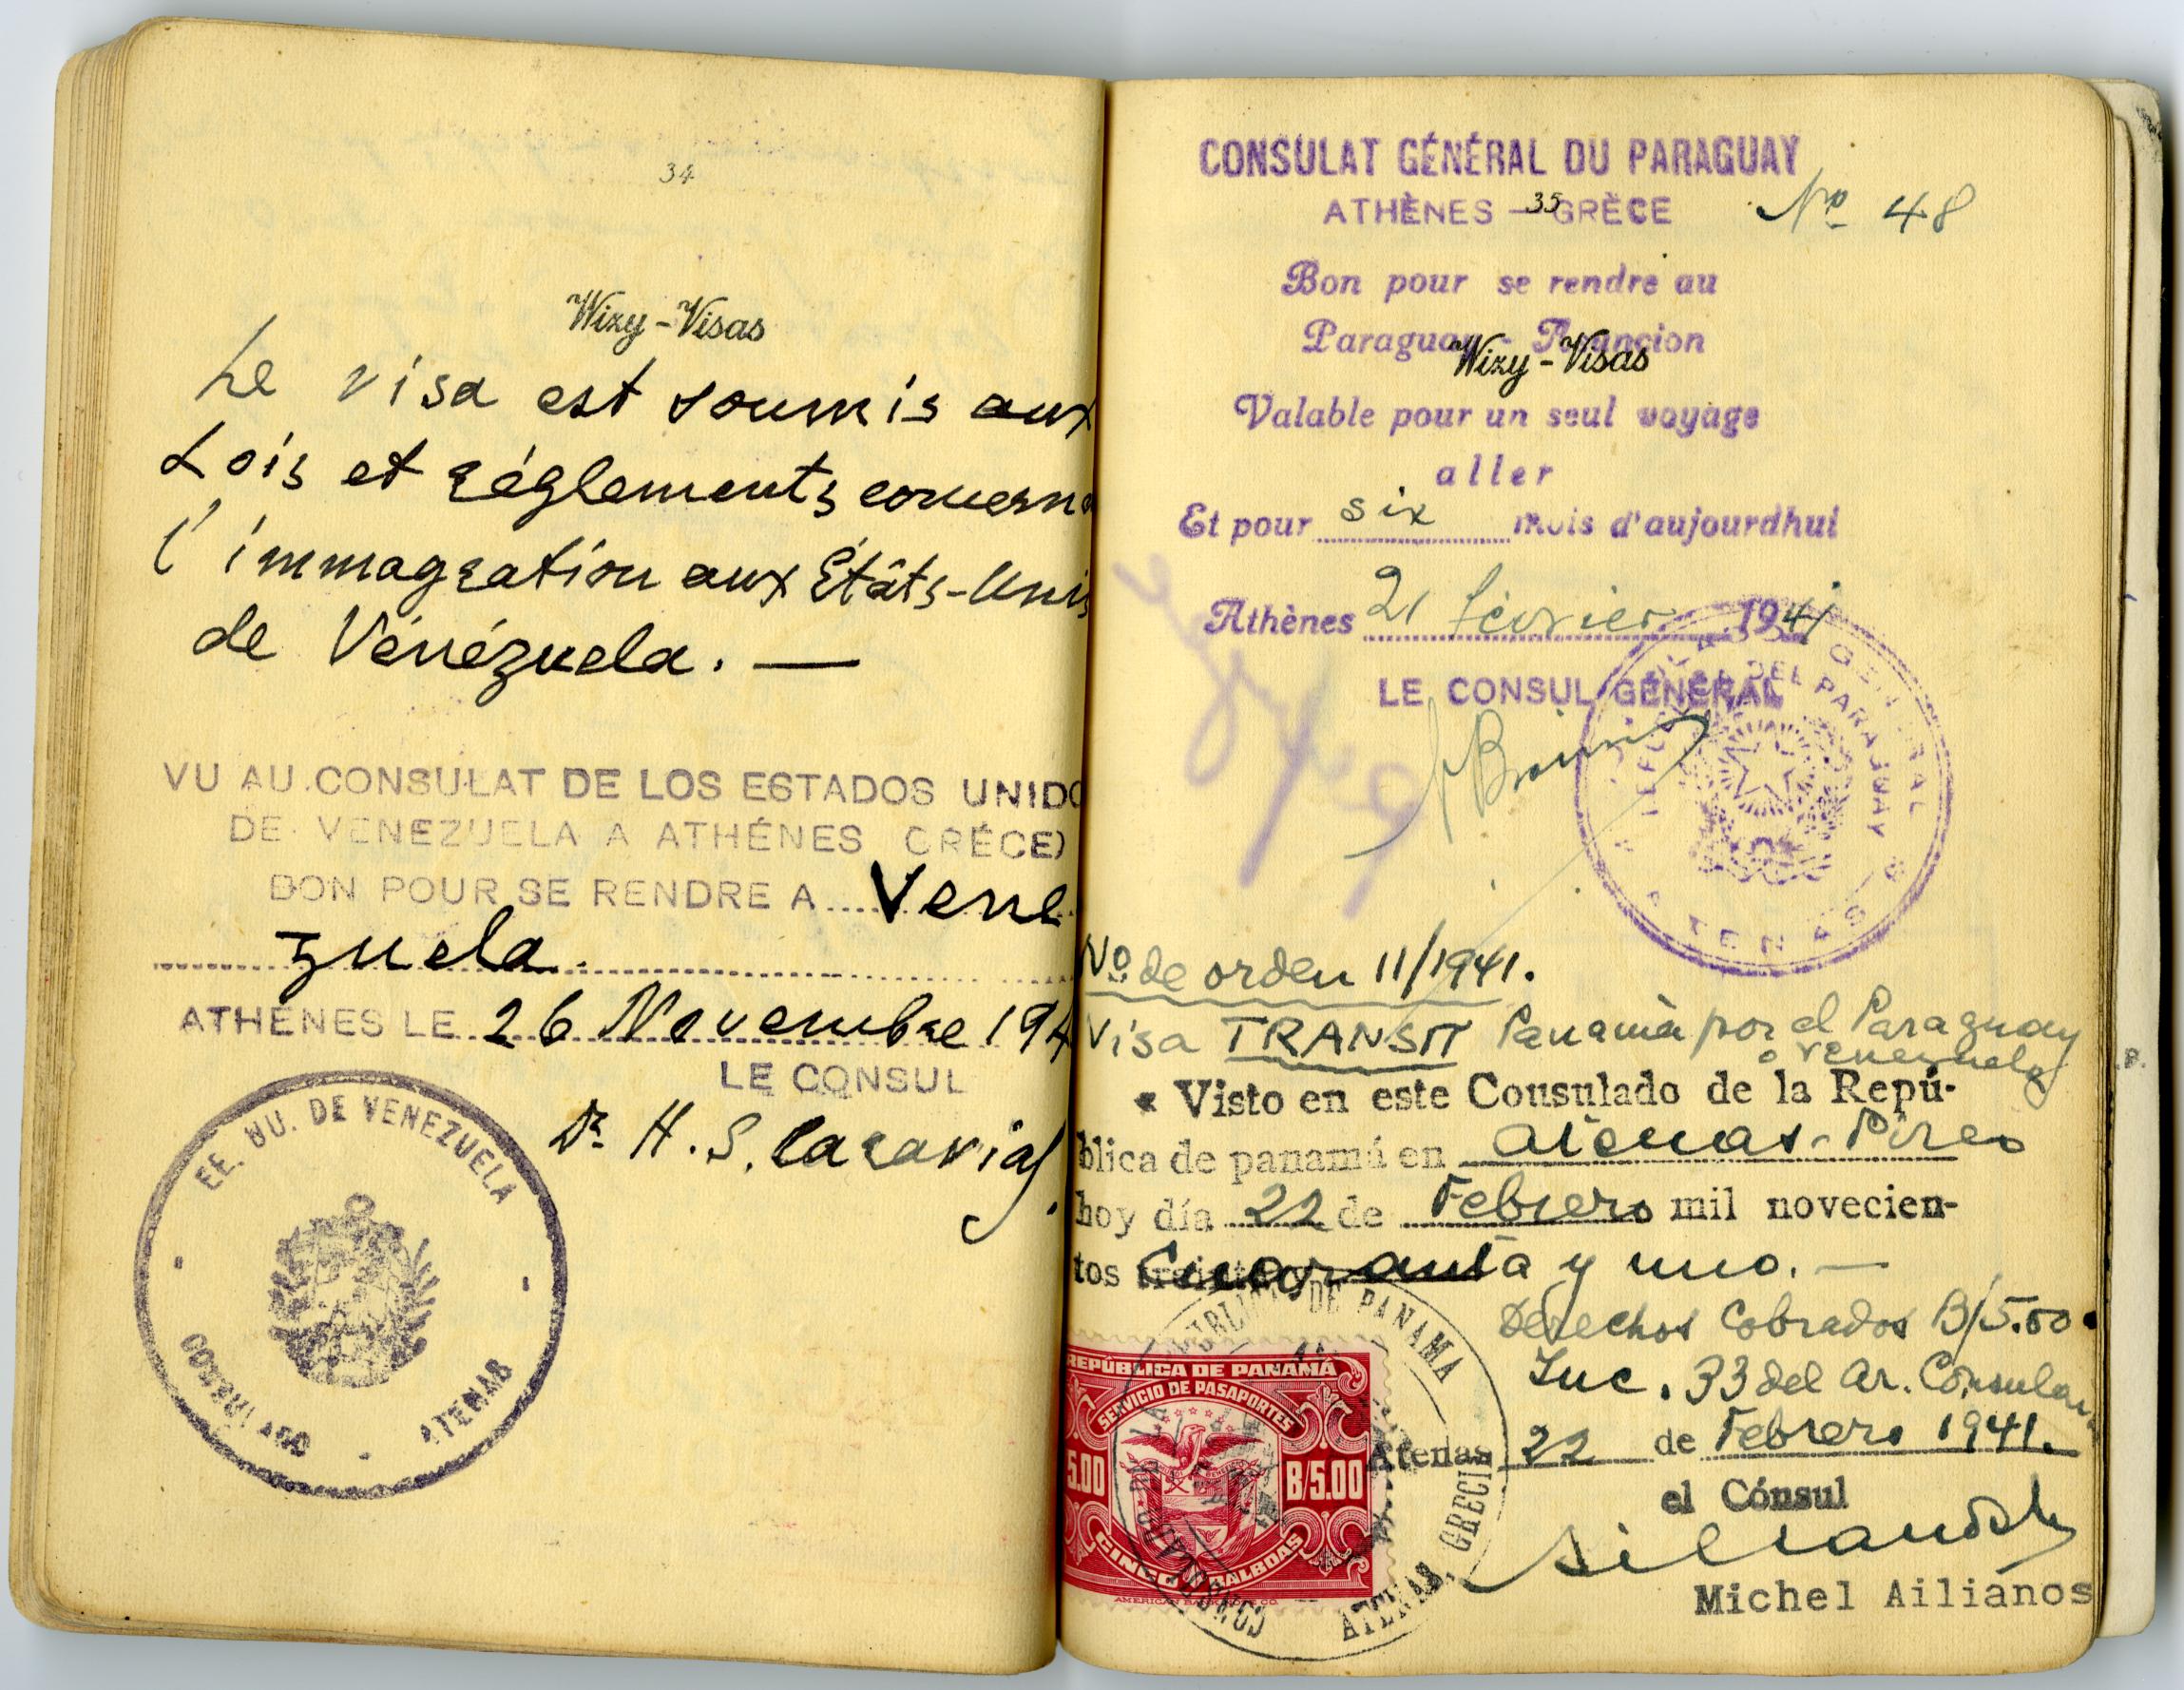 34
Wizy-Visas
Le visa est soumis aux
Lois et réglements concern
l'immagration aux Etâts-Unis
de Vénézuela. —
VU AU CONSULAT DE LOS ESTADOS UNIDO
DE VENEZUELA A ATHÉNES GRÉCE)
BON POUR SE RENDRE A Vene
zuela.
ATHENES LE 26 Novembre 194
LE CONSUL
Dr H. S. Caravias.
EE. UU. DE VENEZUELA
CONSULADO - ATENAS
CONSULAT GÉNÉRAL DU PARAGUAY
ATHÈNES — GRÈCE
35
No 48
Bon pour se rendre au
Paraguay - Asuncion
Wizy-Visas
Valable pour un seul voyage
aller
Et pour six mois d'aujourdhui
Athènes 21 février 1941
LE CONSUL GÉNÉRAL
GENERAL DEL PARAGUAY
ATENAS
No de orden 11/1941.
Visa TRANSIT Panamà por el Paraguay
o Venezuela
« Visto en este Consulado de la Repú-
blica de panamá en Atenas-Pireo
hoy día 22 de Febrero mil novecien-
tos Cuaranta y uno. —
Derechos Cobrados B/5.00
Inc. 33 del Ar. Consular
Atenas 22 de Febrero 1941.
el Cónsul
Michel Ailianos
REPÚBLICA DE PANAMÁ
SERVICIO DE PASAPORTES
5.00 B/5.00
CINCO BALBOAS
AMERICAN BANK NOTE CO.
CONSULADO DE LA REPUBLICA DE PANAMA
ATENAS, GRECIA